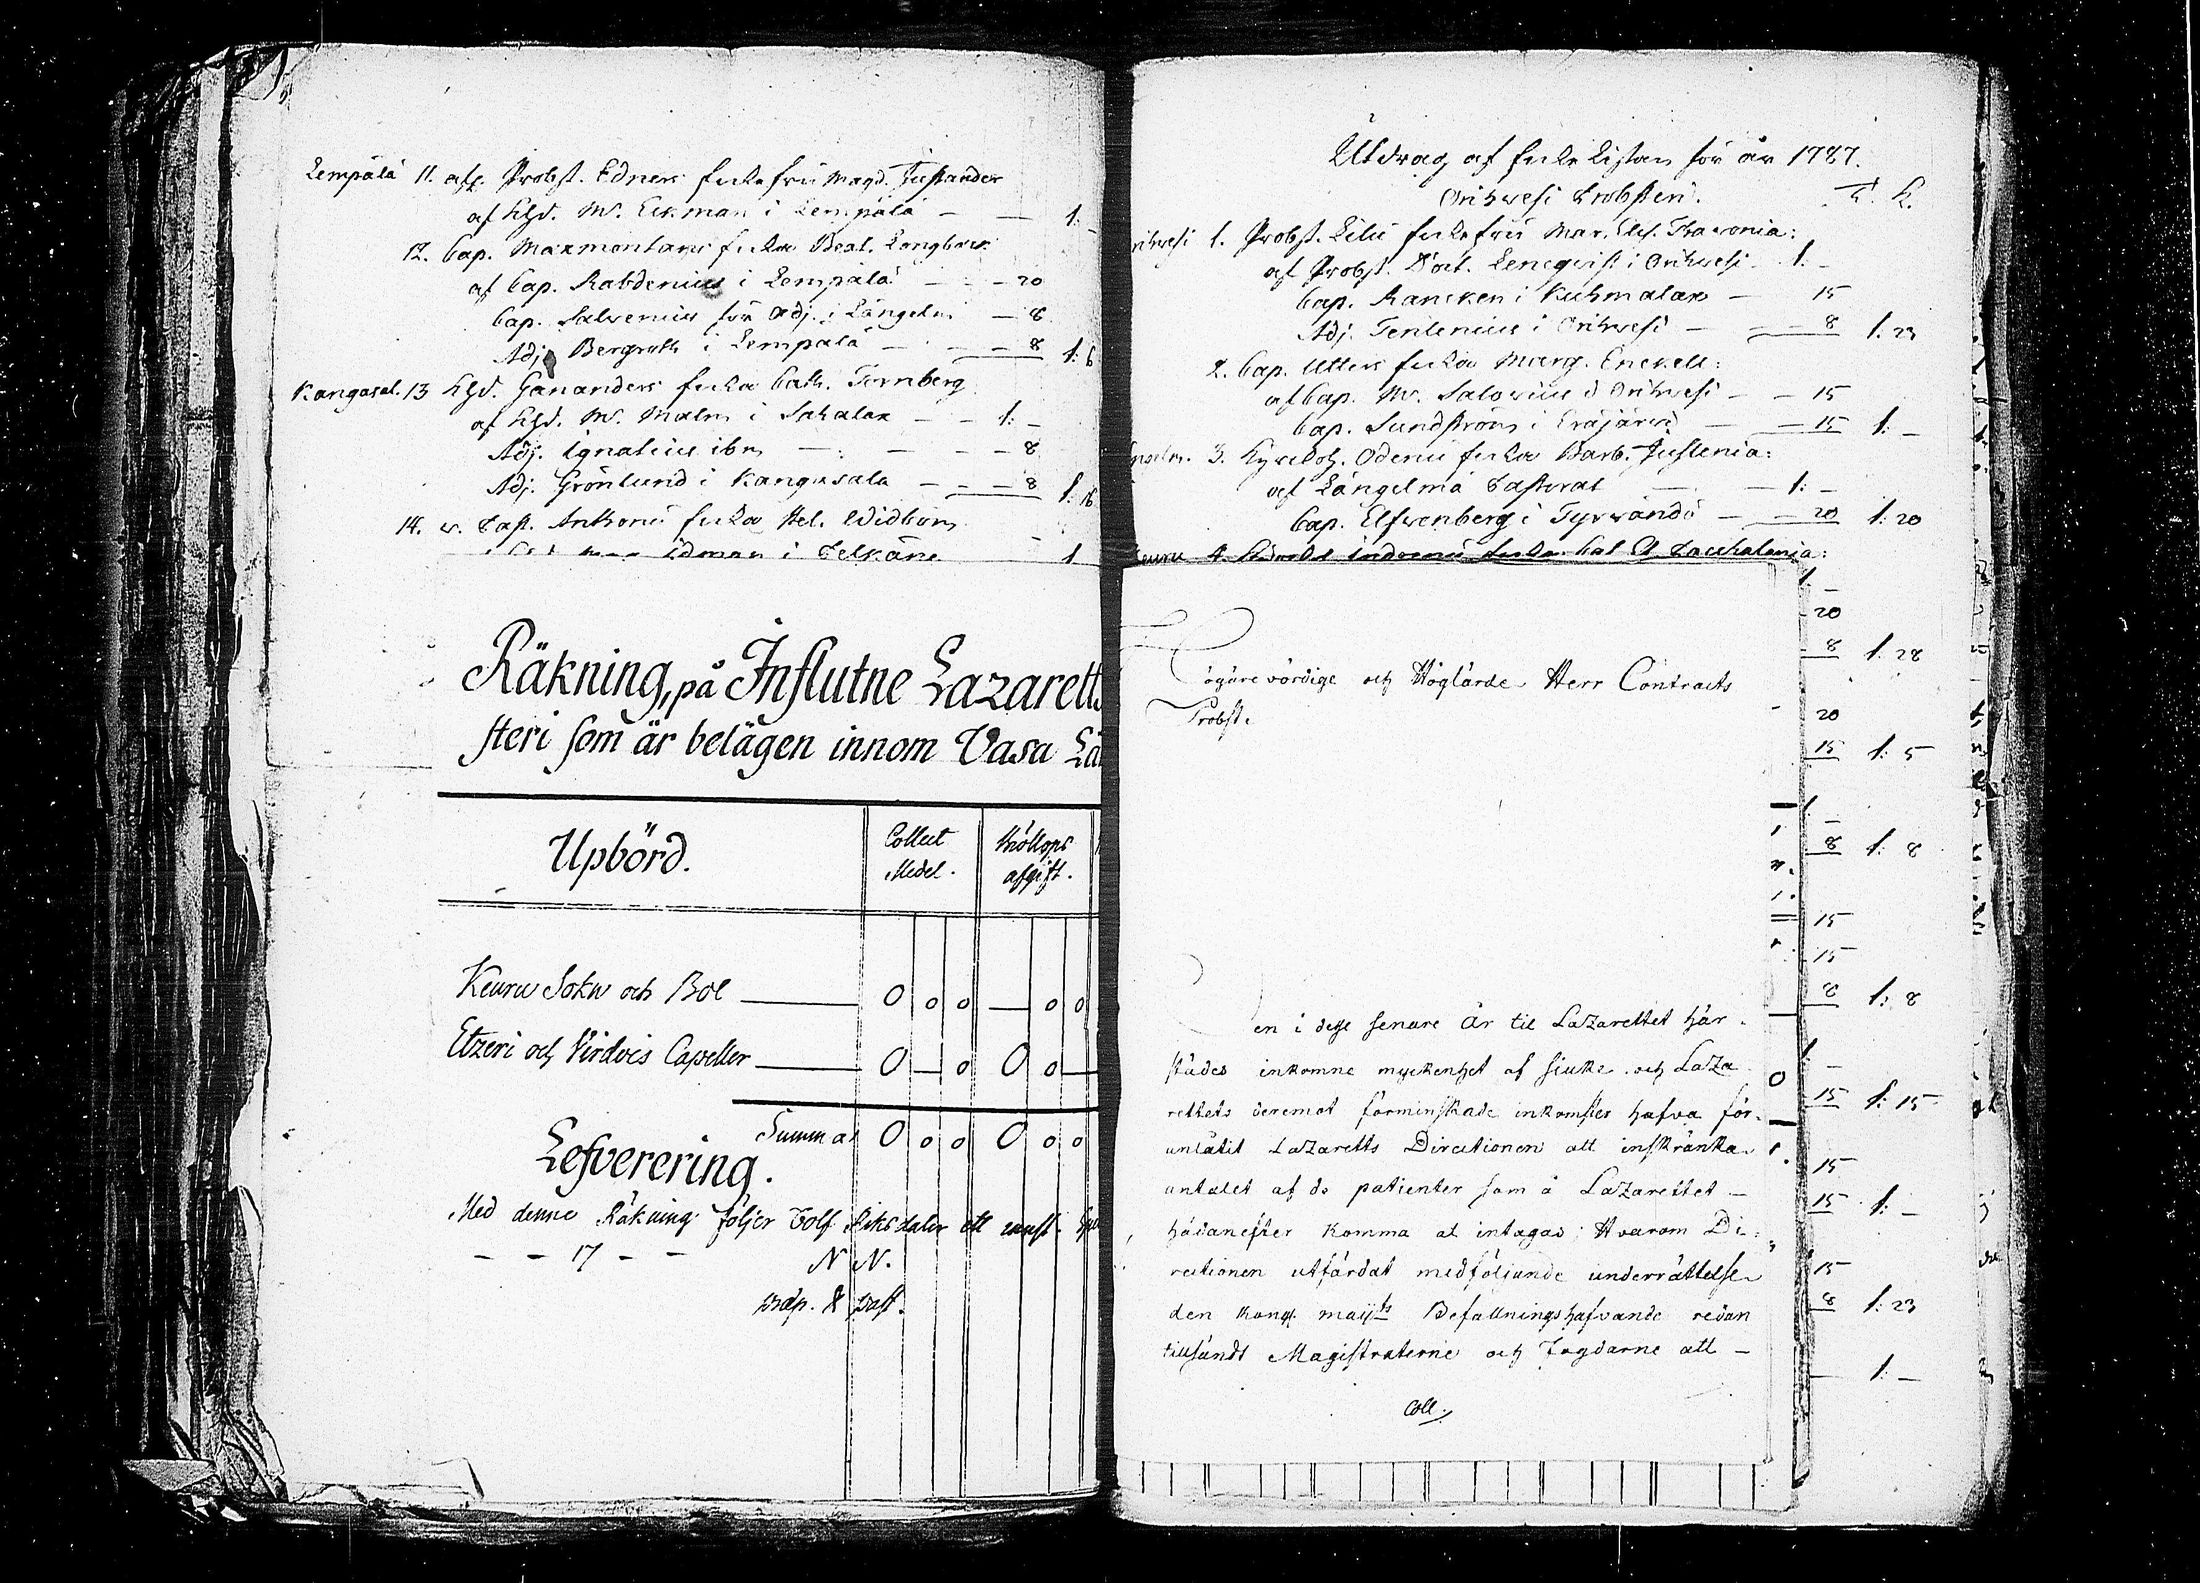 Lempälä 11. afl. Probst. Edners Enkefru Magd. Justander
af Khd. M. Ekman i Lempälä — — 1: –
12. Cap. Maxmontans Enka Beat. Longberg
af Cap. Rabdenius i Lempälä — – 20
Cap. Salvenius för Adj. i Längelm – 8
Adj. Bergroth i Lempälä — – – 8 1: 6
Kangasal. 13 Khd. Gananders Enka Cath. Tornberg
af Khd. M. Malm i Sahalax – – 1: –
Adj. Ignatius ibm — – – – 8
Adj. Grönlund i Kangasala – – – 8 1: 16
14. v. Past. Anthonii Enka Hel. Widbom
Idman i Pelkäne 1
Räkning, på Influtne Lazaretts
steri som är belägen innom Vasa Lä
Upbörd.
Collect Medel.
Bröllops afgift.
Keuru Sokn och Bol — 0 0 0 — 0 0
Etzeri och Virdois Capeller — 0 — 0 0 0 —
Summa 0 0 0 0 0 0
Lefverering.
Med denne Räkning följer Tolf Riksdaler ett
– – 17 – – N N.
præp. & past.
Utdrag af Enke Listan för år 1787.
Orihvesi Probsteri. R. K.
rihvesi 1. Probst. Lilii Enkefru Mar. Elis.
af Probst. Doct. Lencqvist i Orihvesi 1: –
Cap. Rancken i Kuhmalax — 15
Adj. Terilenius i Orihvesi — – 8 1: 23
2. Cap. Utters Enka Marg. Enckell:
af Cap. M. Salovius i Orihvesi – – 15
Cap. Sundström i Eräjärvi — – 15 1: –
ngelm. 3. Kyrckoh. Odenii Enka Barb. Justenia:
af Längelmä Pastorat — – 1: –
Cap. Elfvenberg i Tyrvändö — – 20 1: 20
Keuru 4.
1: –
20
8 1: 28
20
15 1: 5
1: –
8 1: 8
15
15
8 1: 8
1: –
15 1: 15
15
15 1: –
15
8 1: 23
— 1: –
ögärevördige och Höglärde Herr Contracts
Probst.
en i desse senare År til Lazarettet här
städes inkomne myckenhet af siuke och Laza
rettets deremot förminskade inkomster hafva för
anlåtit Lazaretts Directionen att inskränka
antalet af de patienter som å Lazarettet –
hädanefter komma at intagas; Hvarom Di:
rectionen utfärdat medföljande underrättelse
den Kongl. Maijts Befallningshafvande redan
tillsändt Magistraterne och Fogdarne att –
Coll.